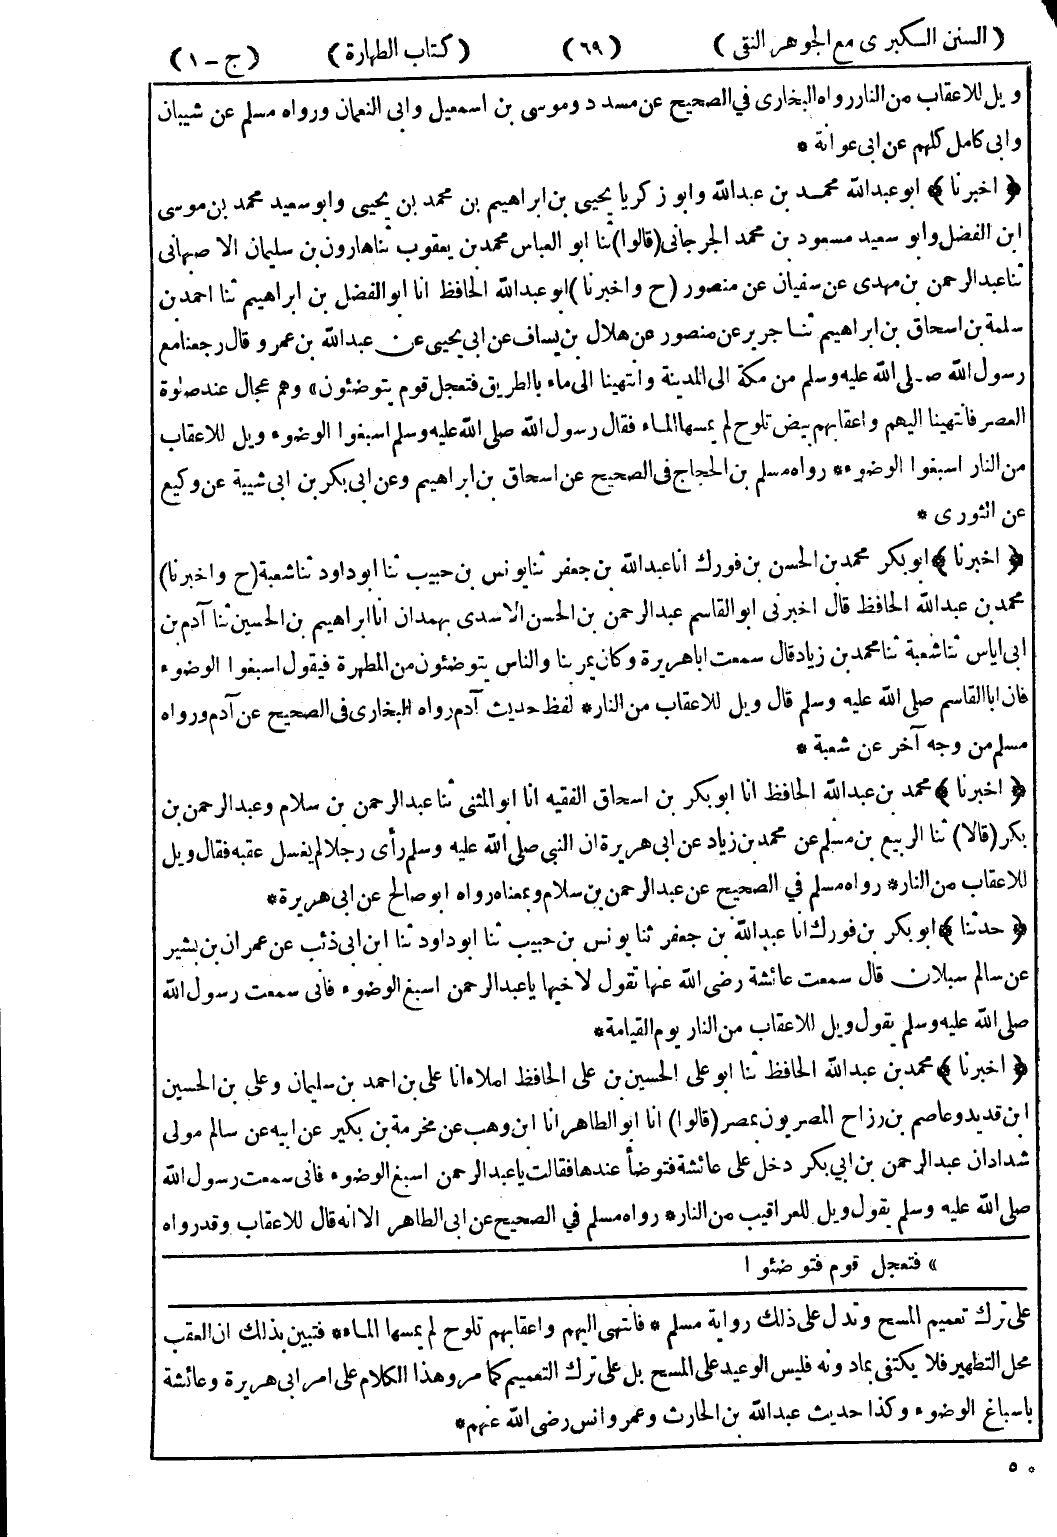 (السنن الكبرى مع الجوهر النقى) (٦٩) (كتاب الطهارة) (ج-١)
ويل للاعقاب من النار رواه البخارى في الصحيح عن مسدد وموسى بن اسمعيل وابى النعمان ورواه مسلم عن شيبان
وابى كامل كلهم عن ابى عوانة *
﴿ اخبرنا ﴾ ابو عبدالله محمد بن عبدالله وابو زكريا يحيى بن ابراهيم بن محمد بن يحيى وابو سعيد محمد بن موسى
ابن الفضل وابو سعيد مسعود بن محمد الجرجانى (قالوا) ثنا ابو العباس محمد بن يعقوب ثنا هارون بن سليمان الاصبهانى
ثنا عبدالرحمن بن مهدى عن سفيان عن منصور (ح واخبرنا) ابو عبدالله الحافظ انا ابو الفضل بن ابراهيم ثنا احمد بن
سلمة بن اسحاق بن ابراهيم ثنا جرير عن منصور عن هلال بن يساف عن ابى يحيى عن عبدالله بن عمرو قال رجعنا مع
رسول الله صلى الله عليه وسلم من مكة الى المدينة وانتهينا الى ماء بالطريق فتعجل قوم يتوضئون» وهم عجال عند صلوة
العصر فانتهينا اليهم واعقابهم بيض تلوح لم يمسها الماء فقال رسول الله صلى الله عليه وسلم اسبغوا الوضوء ويل للاعقاب
من النار اسبغوا الوضوء* رواه مسلم بن الحجاج فى الصحيح عن اسحاق بن ابراهيم وعن ابى بكر بن ابى شيبة عن وكيع
عن الثورى *
﴿ اخبرنا ﴾ ابوبكر محمد بن الحسن بن فورك انا عبدالله بن جعفر ثنا يونس بن حبيب ثنا ابو داود ثنا شعبة (ح واخبرنا)
محمد بن عبدالله الحافظ قال اخبرنى ابو القاسم عبدالرحمن بن الحسن الاسدى بهمدان انا ابراهيم بن الحسين ثنا آدم بن
ابى اياس ثنا شعبة ثنا محمد بن زياد قال سمعت ابا هريرة وكان يمر بنا والناس يتوضئون من المطهرة فيقول اسبغوا الوضوء
فان ابا القاسم صلى الله عليه وسلم قال ويل للاعقاب من النار* لفظ حديث آدم رواه البخارى فى الصحيح عن آدم ورواه
مسلم من وجه آخر عن شعبة *
﴿ اخبرنا ﴾ محمد بن عبدالله الحافظ انا ابوبكر بن اسحاق الفقيه انا ابو المثنى ثنا عبدالرحمن بن سلام وعبدالرحمن بن
بكر (قالا) ثنا الربيع بن مسلم عن محمد بن زياد عن ابى هريرة ان النبى صلى الله عليه وسلم رأى رجلا لم يغسل عقبه فقال ويل
للاعقاب من النار* رواه مسلم في الصحيح عن عبدالرحمن بن سلام وبمعناه رواه ابو صالح عن ابى هريرة*
﴿ حدثنا ﴾ ابوبكر بن فورك انا عبدالله بن جعفر ثنا يونس بن حبيب ثنا ابو داود ثنا ابن ابى ذئب عن عمران بن بشير
عن سالم سبلان قال سمعت عائشة رضى الله عنها تقول لاخيها ياعبدالرحمن اسبغ الوضوء فانى سمعت رسول الله
صلى الله عليه وسلم يقول ويل للاعقاب من النار يوم القيامة*
﴿ اخبرنا ﴾ محمد بن عبدالله الحافظ ثنا ابو على الحسين بن على الحافظ املاء انا على بن احمد بن سليمان وعلى بن الحسين
ابن قديد وعاصم بن رزاح المصريون بمصر (قالوا) انا ابو الطاهر انا ابن وهب عن مخرمة بن بكير عن ابيه عن سالم مولى
شداد ان عبدالرحمن بن ابي بكر دخل على عائشة فتوضأ عندها فقالت ياعبدالرحمن اسبغ الوضوء فانى سمعت رسول الله
صلى الله عليه وسلم يقول ويل للعراقيب من النار* رواه مسلم في الصحيح عن ابى الطاهر الا انه قال للاعقاب وقد رواه
» فتعجل قوم فتوضئوا
على ترك تعميم المسح وتدل على ذلك رواية مسلم * فانتهى اليهم واعقابهم تلوح لم يمسها الماء* فتبين بذلك ان العقب
محل التطهير فلا يكتفى بما دونه فليس الوعيد على المسح بل على ترك التعميم كما مر وهذا الكلام على امر ابى هريرة وعائشة
باسباغ الوضوء وكذا حديث عبدالله بن الحارث وعمرو انس رضى الله عنهم*
* ٥